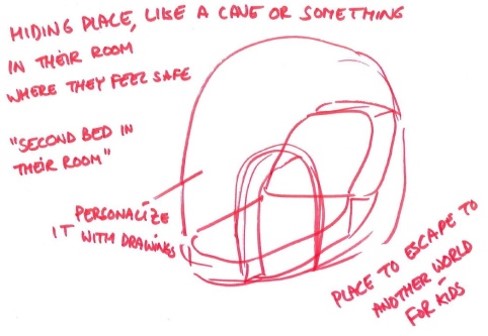 HIDING PLACE, LIKE A CAVE OR SOMETHING
IN THEIR ROOM
WHERE THEY FEEL SAFE
"SECOND BED IN
THEIR ROOM"
PERSONALIZE
IT WITH DRAWINGS
PLACE TO ESCAPE TO
ANOTHER WORLD
FOR KIDS